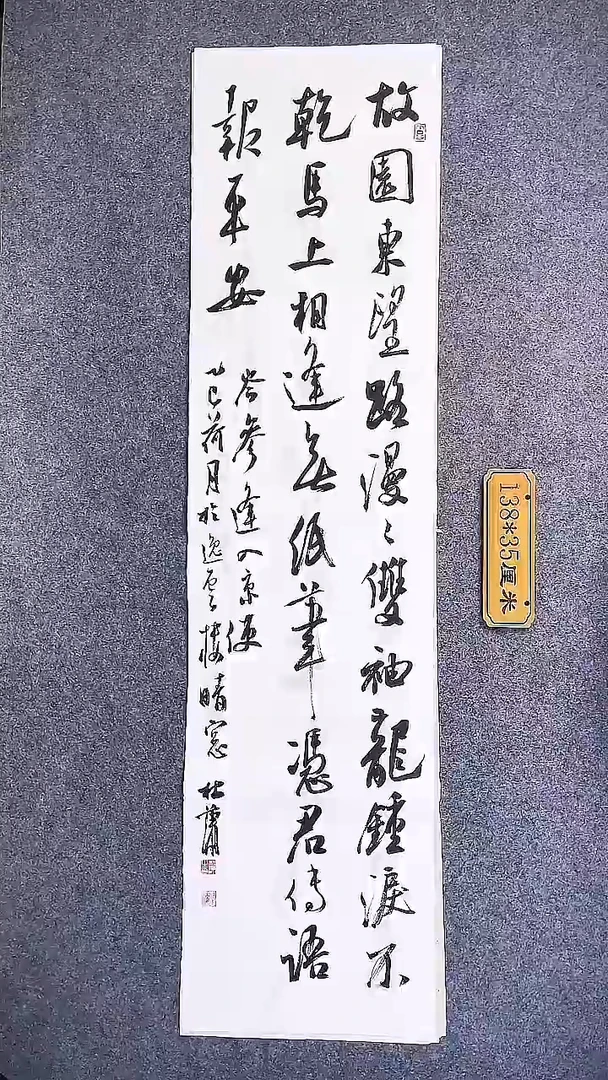 故園東望路漫〻雙袖龍鍾淚不
乾馬上相逢無紙筆憑君傳語
報平安
岑參逢入京使
乙巳荷月於逸雲樓晴窓 杜蕭
138*35厘米